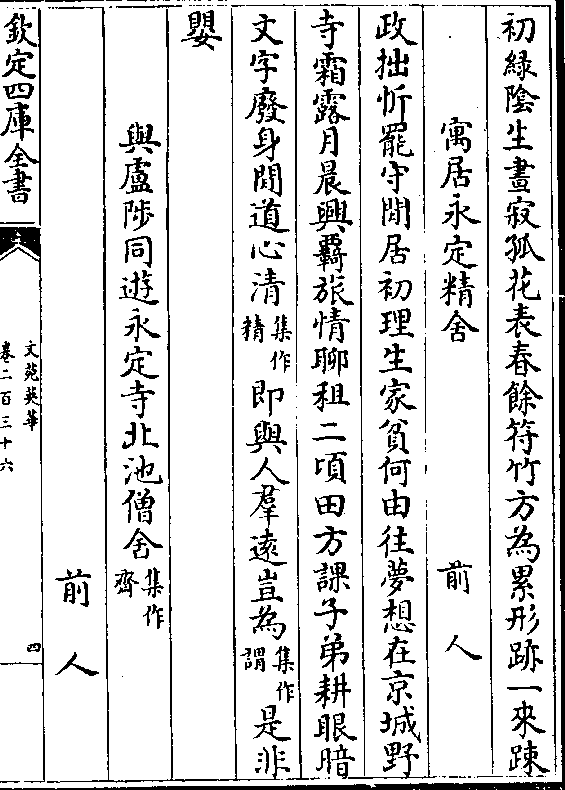 初緑陰生晝寂孤花表春餘符竹方為累形跡一來踈
寓居永定精舍 前人
政拙忻罷守閒居初理生家貧何由往夢想在京城野
寺霜露月晨興羇旅情聊租二頃田方課子弟耕眼暗
文字廢身閒道心清集作精即與人羣遠豈為集作謂是非
嬰
與盧陟同遊永定寺北池僧舍集作齋
前人
欽定四庫全書
文苑英華
卷二百三十六
四